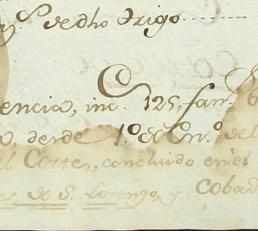 de dho trigo
encia, inc. 125, fan.s 6
o, desde 1.o de En.o del
el Cortes, concluido en el
es de S. Lorenzo, y
Cobad